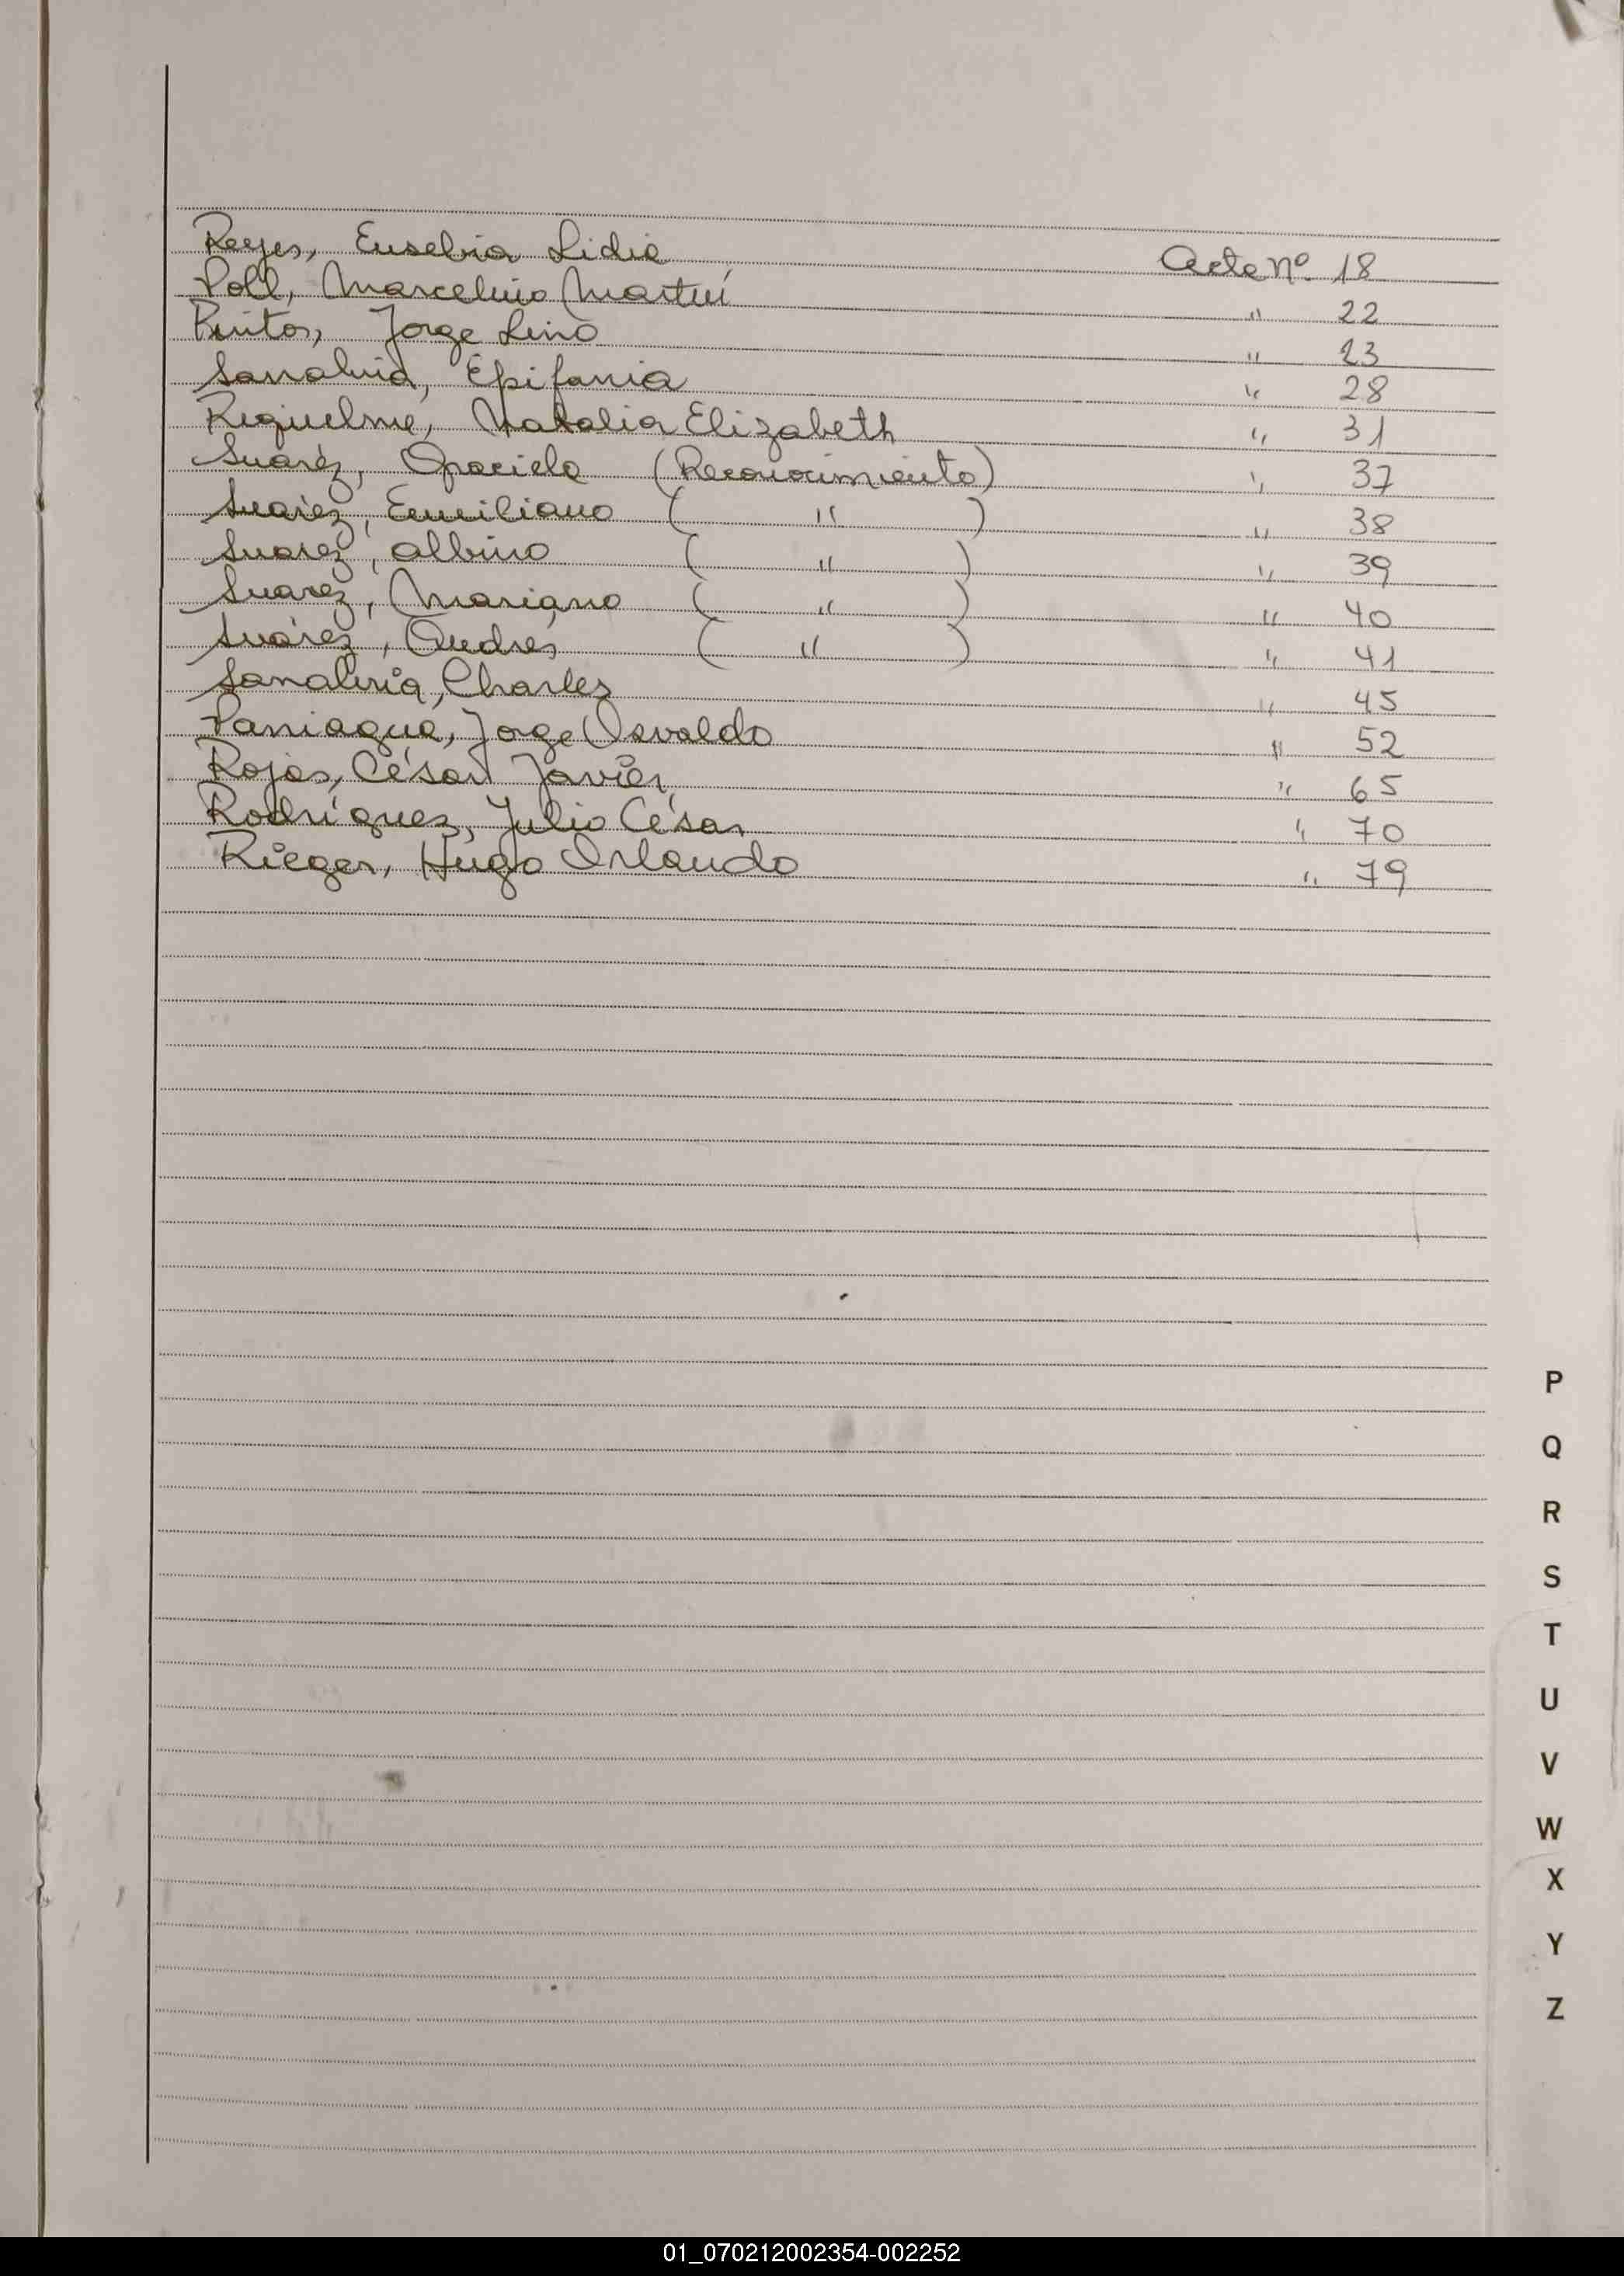 Reyes, Eusebia Lidia Acta Nº 18
Poll, Marcelino Martín " 22
Pintos, Jorge Lino " 23
Sanabria, Epifania " 28
Requelme, Natalia Elizabeth " 31
Suaréz, Graciela (Reconocimiento) " 37
Suaréz, Emiliano ( " ) " 38
Suaréz, Albino ( " ) " 39
Suaréz, Mariano ( " ) " 40
Suárez, Andrés ( " ) " 41
Sanabria, Charles " 45
Paniagua, Jorge Osvaldo " 52
Rojas, César Javier " 65
Rodríguez, Julio César " 70
Rieger, Hugo Orlando " 79
P
Q
R
S
T
U
V
W
X
Y
Z
01_070212002354-002252